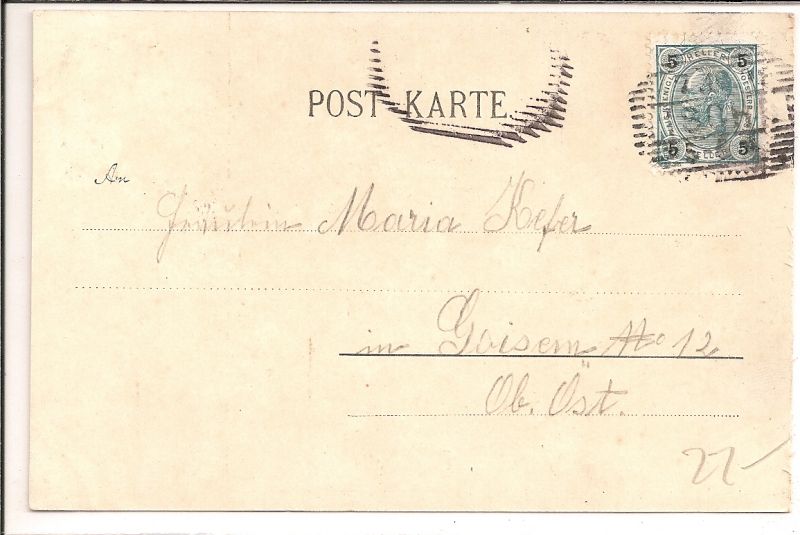 POST KARTE
5 HELLER 5
5 HELLER 5
An
Fräulein Maria Kefer
in Goisern No 12
Ob. Öst.
22-